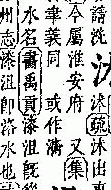 沭疏沭出
今屬淮安府又集
義同 或作
水名書禹貢漆沮旣
州志漆沮卽洛水也